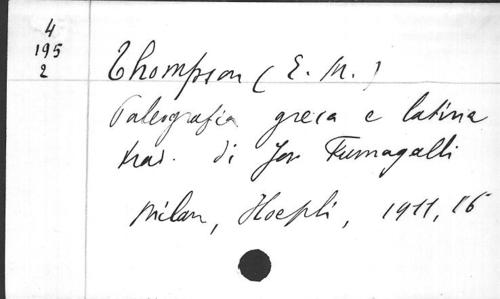 4
195
2
Thompson (E. M.)
Paleografia greca e latina
trad. di Fumagalli
Milan, Hoepli, 1911, 16